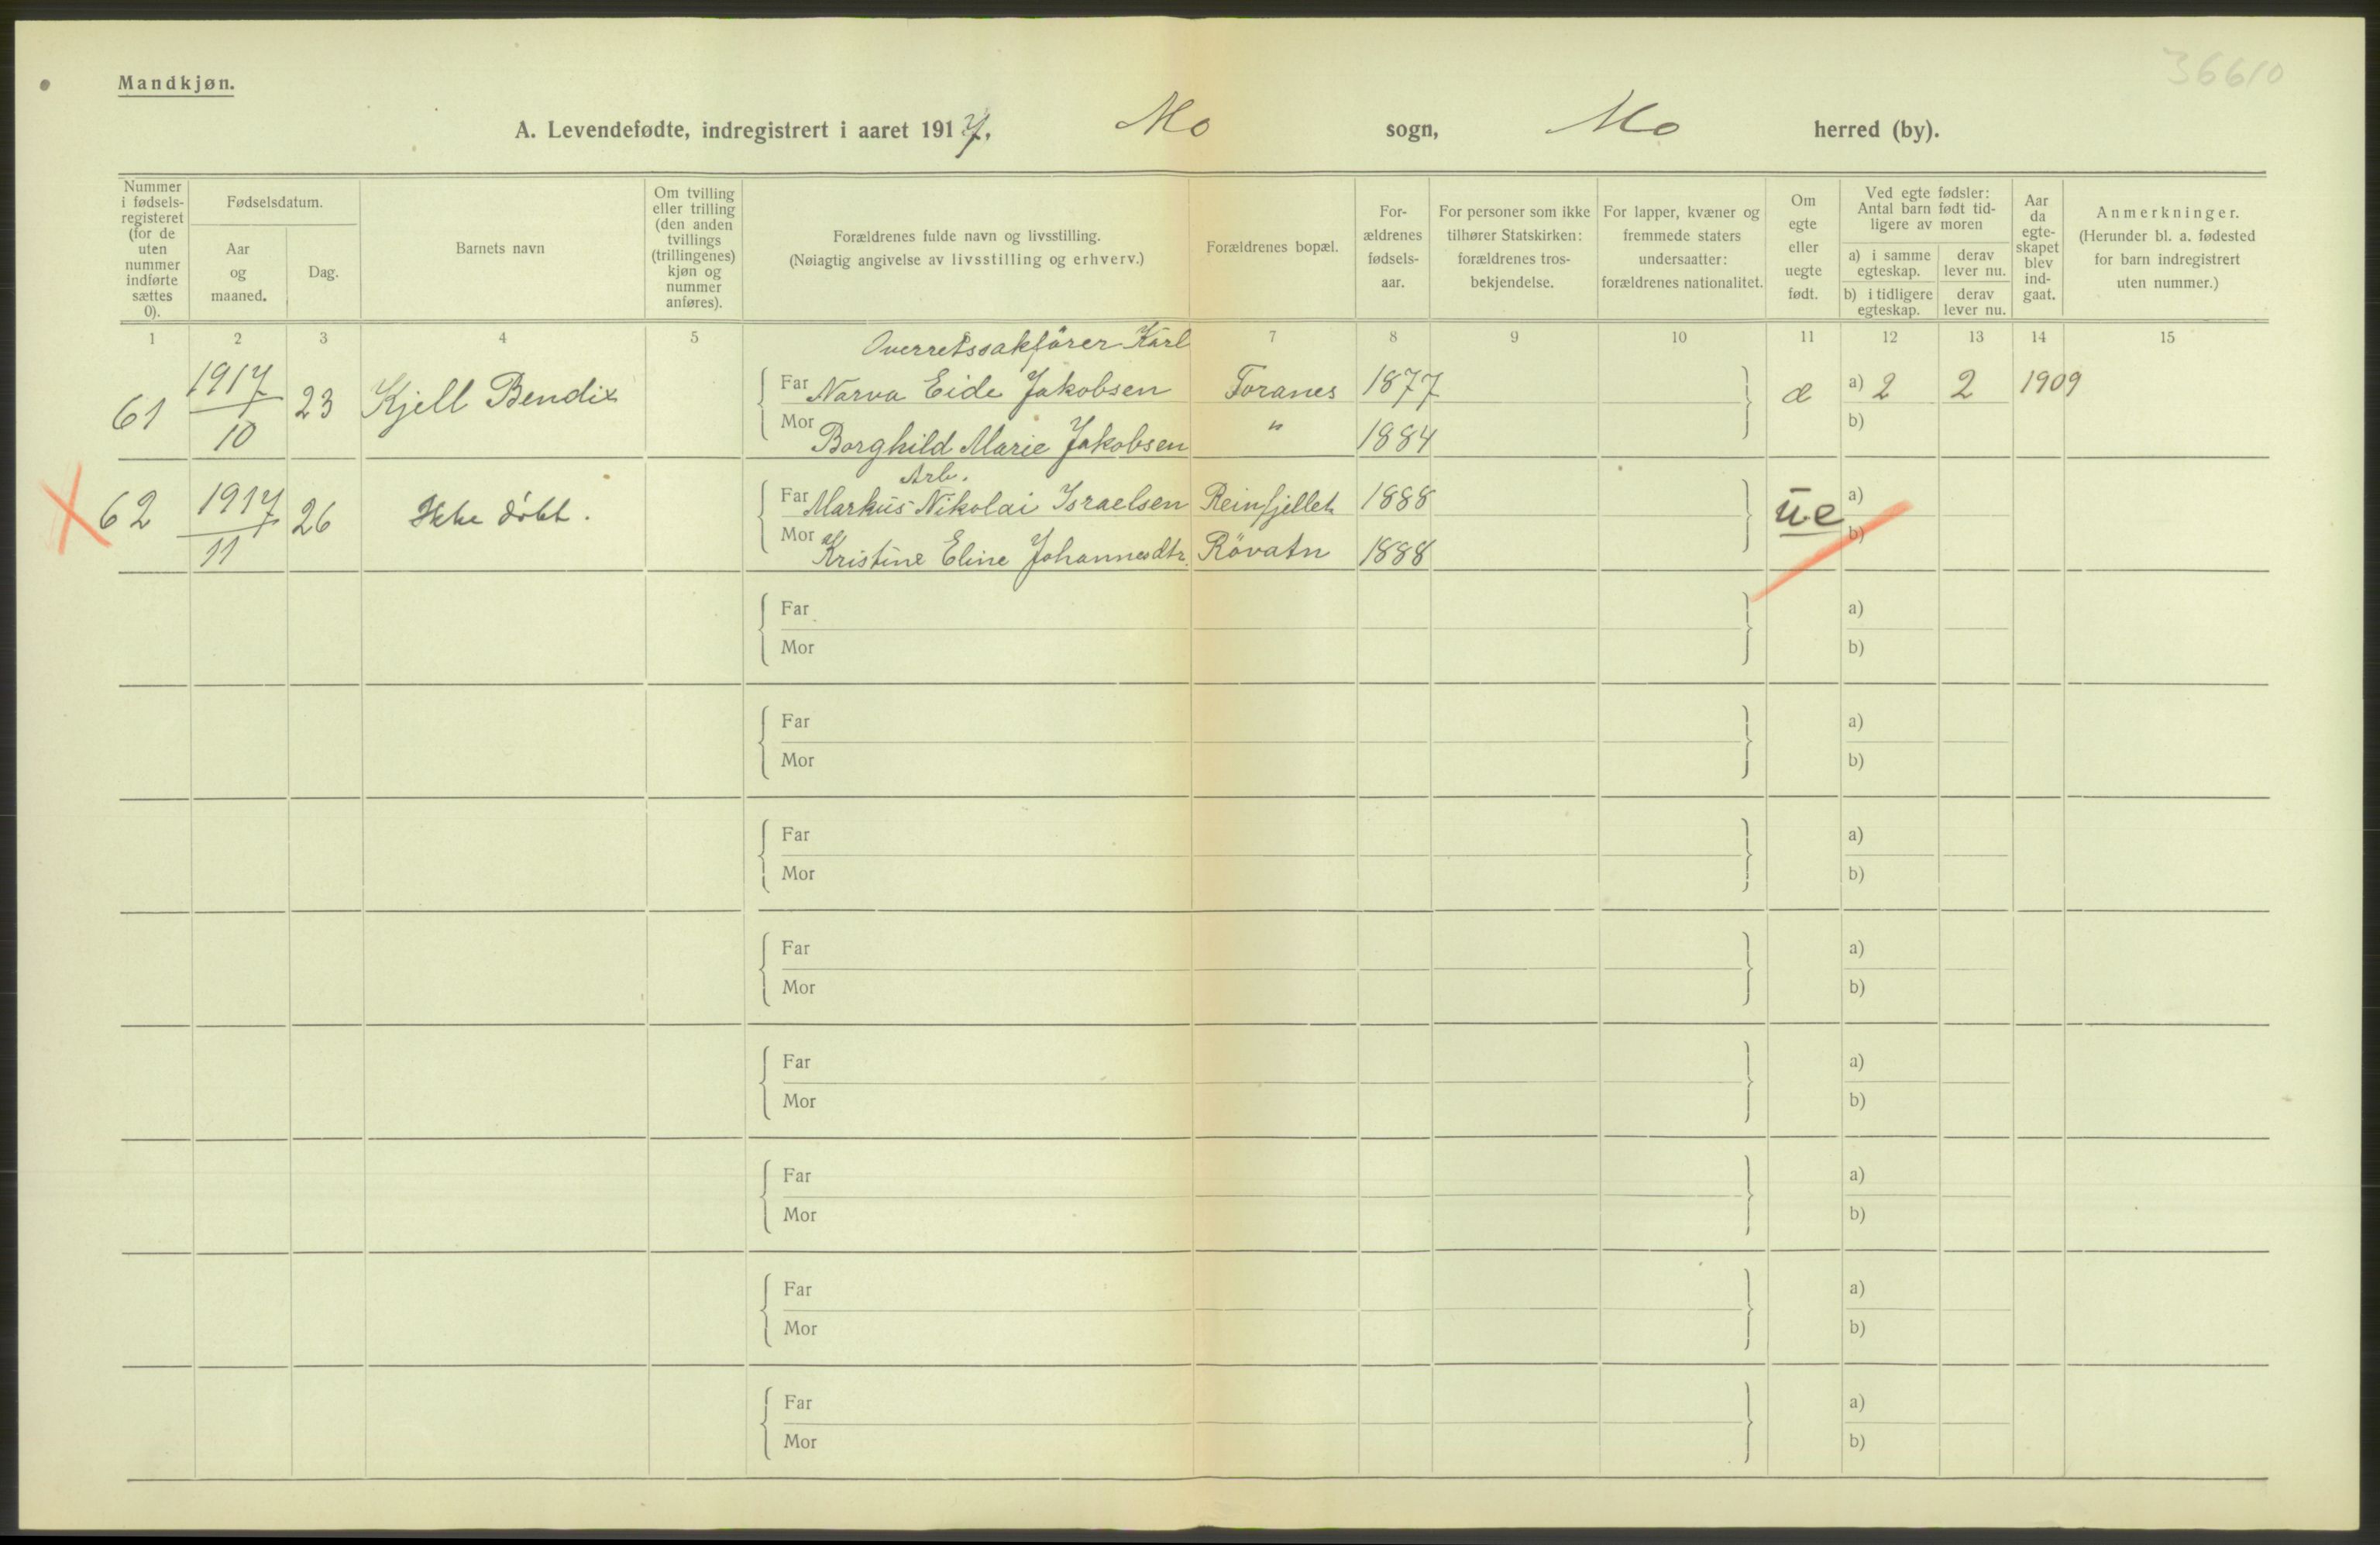 36610
Mandkjøn.
A. Levendefødte, indregistrert i aaret 1917. Mo sogn, Mo herred (by).
Nummer i fødsels-registeret (for de uten nummer indførte sættes 0).
Fødselsdatum.
Aar og maaned.
Dag.
Barnets navn
Om tvilling eller trilling (den anden tvillings (trillingenes) kjøn og nummer anføres).
Forældrenes fulde navn og livsstilling.
(Nøiagtig angivelse av livsstilling og erhverv.)
Forældrenes bopæl.
For-ældrenes fødsels-aar.
For personer som ikke tilhører Statskirken: forældrenes tros-bekjendelse.
For lapper, kvæner og fremmede staters undersaatter: forældrenes nationalitet.
Om egte eller uegte født.
Ved egte fødsler: Antal barn født tid-ligere av moren
a) i samme egteskap.
derav lever nu.
b) i tidligere egteskap.
derav lever nu.
Aar da egte-skapet blev ind-gaat.
Anmerkninger.
(Herunder bl. a. fødested for barn indregistrert uten nummer.)
1 2 3 4 5 7 8 9 10 11 12 13 14 15
Overretssakfører Karl
61 1917/10 23 Kjell Bendix Far Narva Eide Jakobsen Toranes 1877 æ a) 2 2 1909
Mor Borghild Marie Jakobsen " 1884 b)
Arb.
62 1917/11 26 Ikke døbt. Far Markus Nikolai Israelsen Reinfjellet 1888 ue a)
Mor Kristine Eline Johannesdtr. Rövatn 1888 b)
Far a)
Mor b)
Far a)
Mor b)
Far a)
Mor b)
Far a)
Mor b)
Far a)
Mor b)
Far a)
Mor b)
Far a)
Mor b)
Far a)
Mor b)